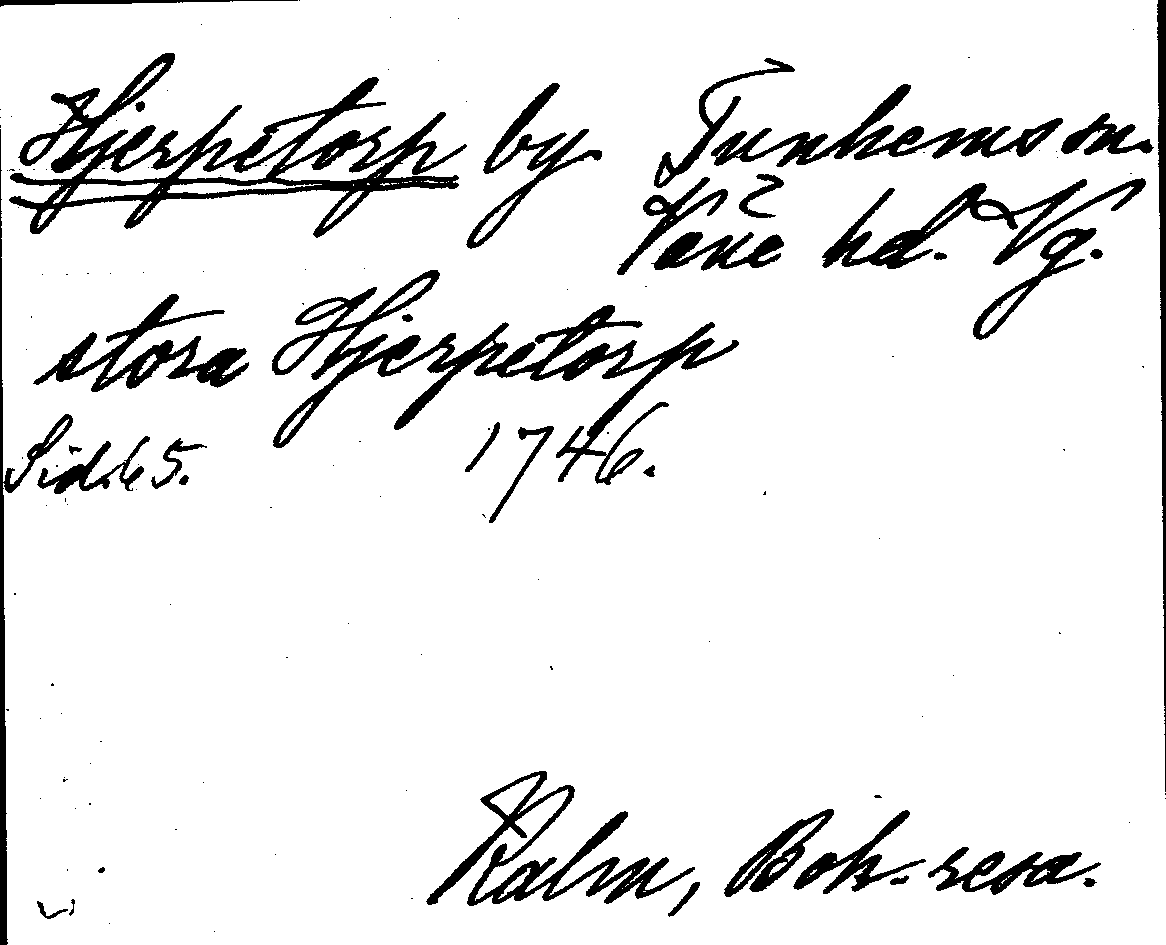 Hjerpetorp by. Tunhems sn.
Väne hd. Vg.
stora Hjerpetorp
Sid. 65. 1746.
Kalm, Boh.-resa.